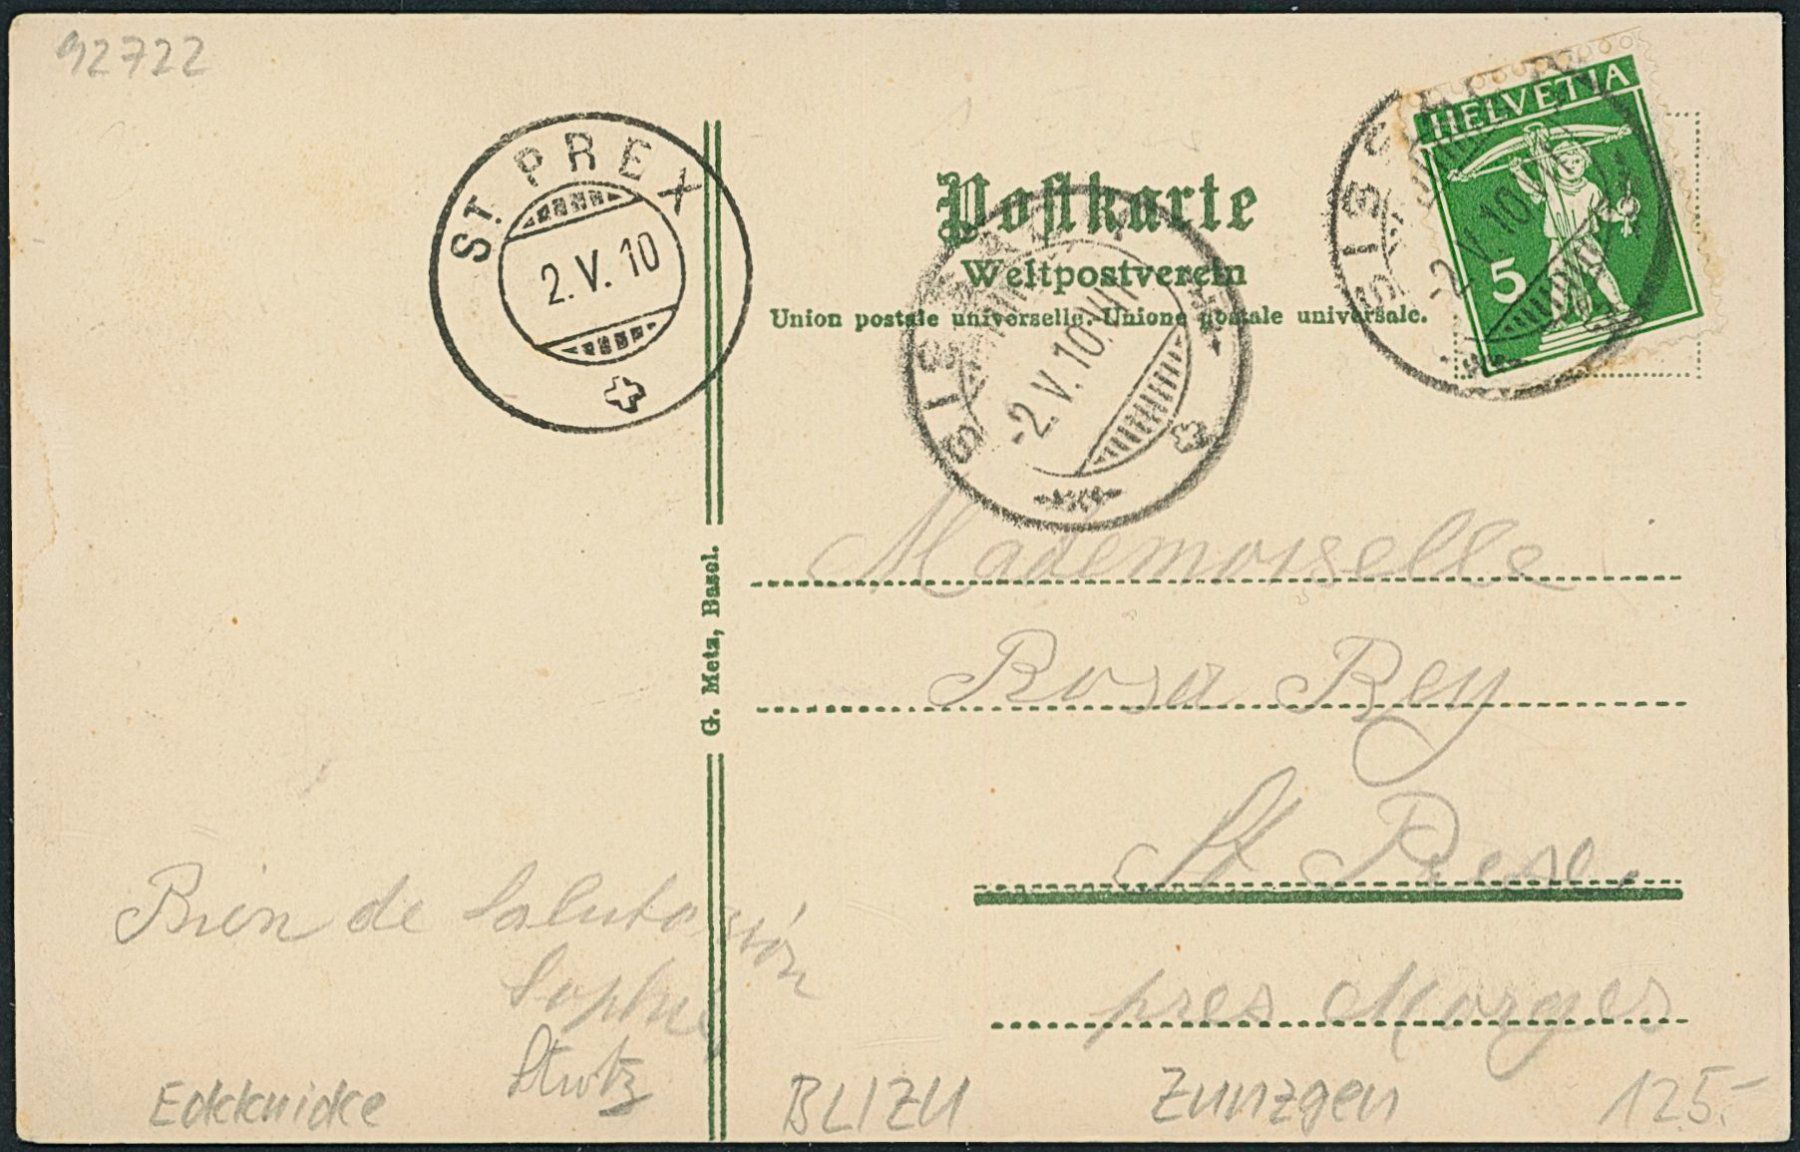 92722
ST. PREX
2. V. 10
HELVETIA
5
-2. V. 10.
Postkarte
Weltpostverein
Union postale universelle. Unione postale universale.
SISS
-2. V. 10.
G. Metz, Basel.
Mademoiselle
Rosa Rey
St Prex.
près Morges
Bien de Salutasión
Sophie
Strutz
BLIZU
Zunzgen
125.-